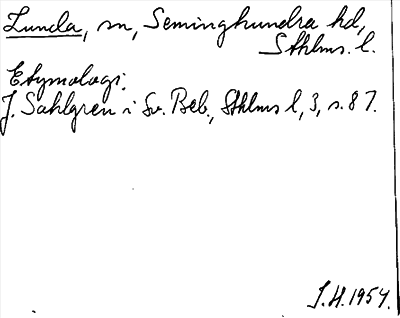 Lunda, sn, Seminghundra hd,
Sthlms. l.
Etymologi:
J. Sahlgren i Sv. Beb., Sthlms l, 3, s. 87.
J.H. 1954.